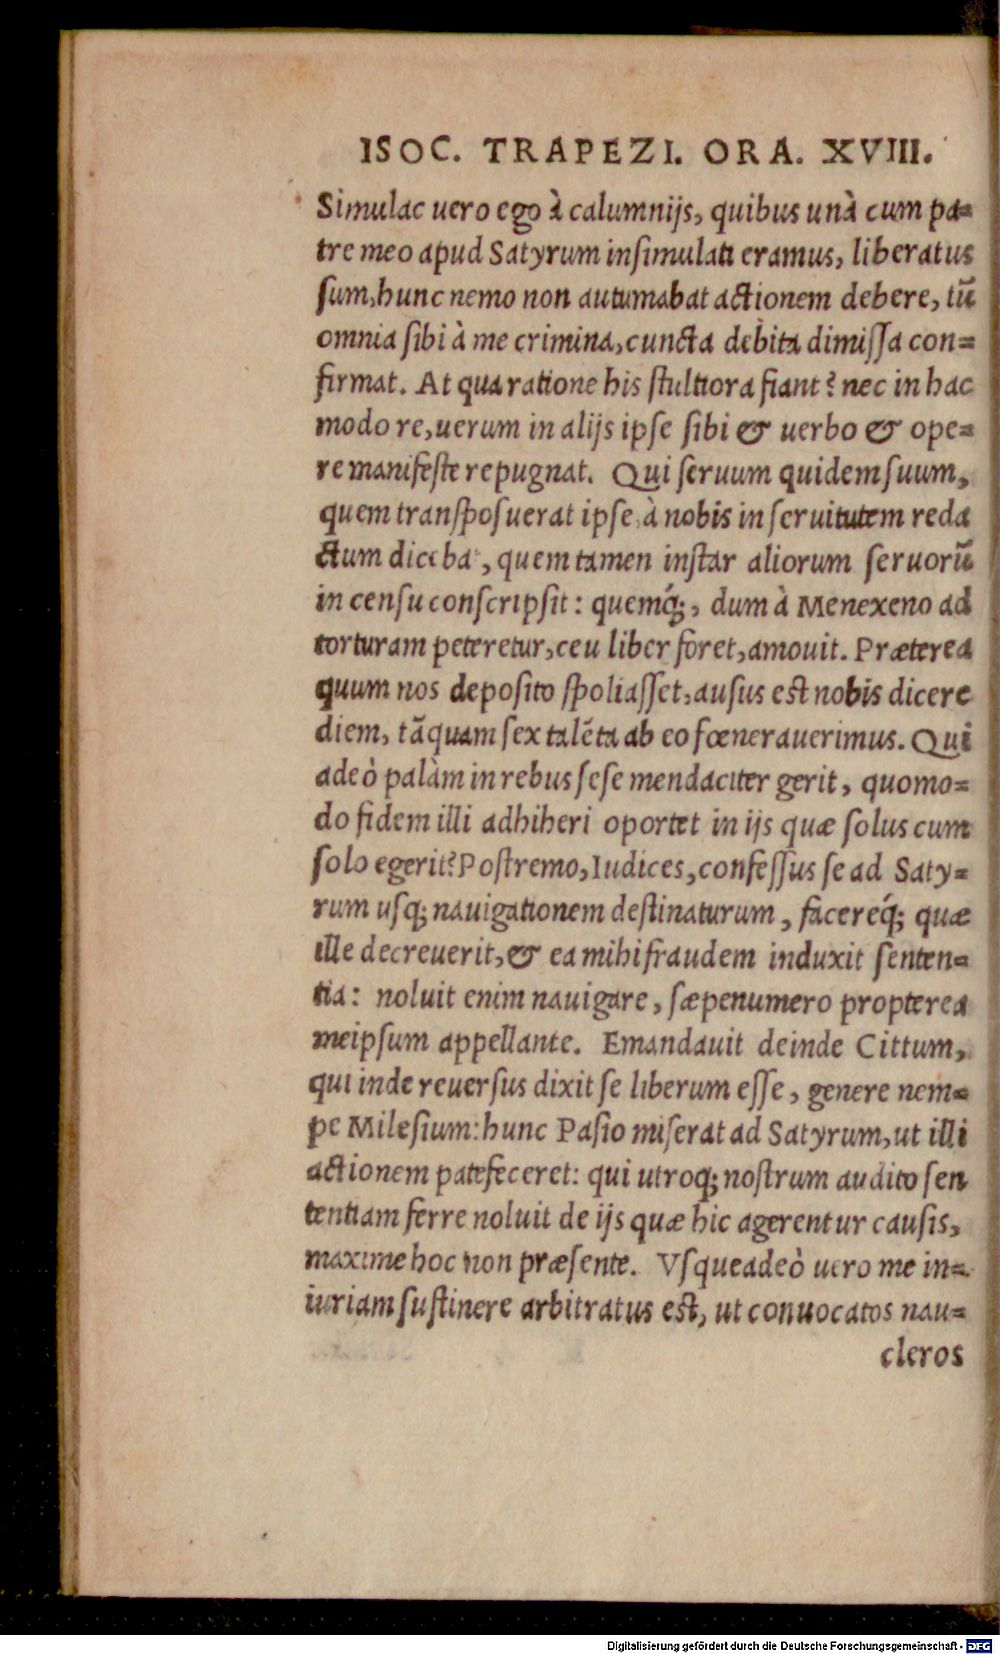 ISOC. TRAPEZI. ORA. XVIII.
Simulac uero ego à calumnijs, quibus unà cum pa=
tre meo apud Satyrum insimulati eramus, liberatus
sum, hunc nemo non autumabat actionem debere, tū
omnia sibi à me crimina, cuncta debita dimissa con=
firmat. At qua ratione his stultiora fiant? nec in hac
modo re, uerum in alijs ipse sibi & uerbo & ope=
re manifeste repugnat. Qui seruum quidem suum,
quem transposuerat ipse à nobis in seruitutem reda
ctum diceba, quem tamen instar aliorum seruorū
in censu conscripsit: quemq́;, dum à Menexeno ad
torturam peteretur, ceu liber foret, amouit. Præterea
quum nos deposito spoliasset, ausus est nobis dicere
diem, tāquam sex talēta ab eo fœnerauerimus. Qui
adeò palàm in rebus sese mendaciter gerit, quomo=
do fidem illi adhiberi oportet in ijs quæ solus cum
solo egerit? Postremo, Iudices, confessus se ad Saty=
rum usq; nauigationem destinaturum, facereq́; quæ
ille decreuerit, & ea mihi fraudem induxit senten=
tia: noluit enim nauigare, sæpenumero propterea
meipsum appellante. Emandauit deinde Cittum,
qui inde reuersus dixit se liberum esse, genere nem=
pe Milesium: hunc Pasio miserat ad Satyrum, ut illi
actionem patefeceret: qui utroq; nostrum audito sen
tentiam ferre noluit de ijs quæ hic agerentur causis,
maxime hoc non præsente. Vsqueadeò uero me in=
iuriam sustinere arbitratus est, ut conuocatos nau=
cleros
Digitalisierung gefördert durch die Deutsche Forschungsgemeinschaft - DFG